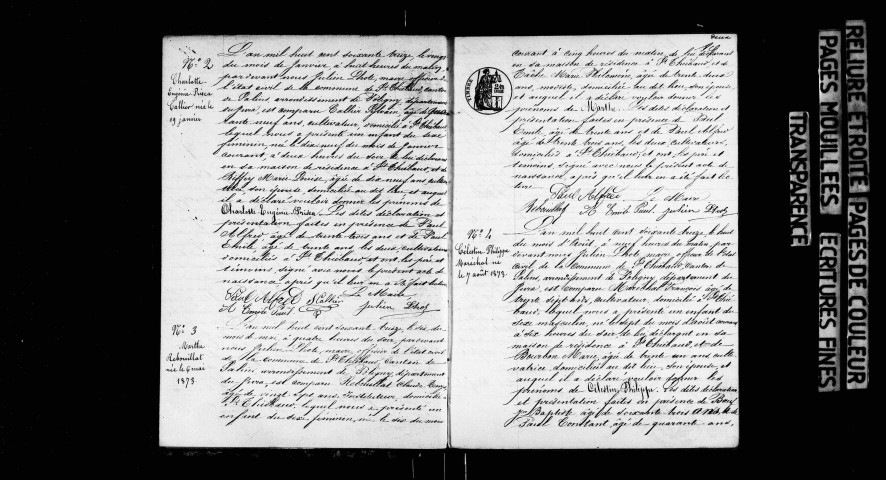 N° 2
Charlotte
Eugénie Prisca
Callier née le
19 janvier
L'an mil huit cent soixante treize le vingt
du mois de janvier à huit heures du matin,
par devant nous Julien Phote, maire officier de
l'état civil de la commune de St Thiébaud, canton
de Salins, arrondissement de Poligny, département
du Jura, est comparu Callier
neuf ans, cultivateur, domicilié à St Thiébaud,
lequel nous a présenté un enfant du sexe
féminin, né le dix neuf du mois de janvier
courant, à deux heures du soir de lui déclarant
en sa maison de résidence à St Thiébaud, et de
Marie Louise, âgée de dix neuf ans
son épouse, domiciliée au dit lieu et auquel
il a déclaré vouloir donner les prénoms de
Charlotte Eugénie Prisca. Les dites déclaration et
présentation faites en présence de Paul
Alfred, âgé de trente trois ans et de Paul
Emile, âgé de trente ans, les deux cultivateurs
domiciliés à St Thiébaud, et ont les père et
témoins, signé avec nous le présent acte de
naissance après qu'il leur en a été fait lecture
Paul Alfred Callier Le Maire
Emile Paul Julien Phote
N° 3
Marthe
Rebouillat
née le 6 mai
1873
L'an mil huit cent soixante treize, le dix du
mois de mai, à quatre heures du soir, pardevant
nous Julien Phote, maire, officier de l'état civil
de la commune de St Thiébaud, canton de
Salins, arrondissement de Poligny, département
du Jura, est comparu Rebouillat
âgé de vingt sept ans, Instituteur, domicilié
à St Thiébaud, lequel nous a présenté un
enfant du sexe féminin, né le six du mois
TIMBRE
courant à cinq heures du matin, de lui déclarant
en sa maison de résidence à St Thiébaud, et de
Marie Philomène, âgée de trente deux
ans, modiste, domiciliée au dit lieu, son épouse,
et auquel il a déclaré vouloir donner les
prénoms de Marthe. Les dites déclaration et
présentation faites en présence de Paul
Emile âgé de trente ans et de Paul Alfred
âgé de trente trois ans, les deux, cultivateurs,
domiciliés à St Thiébaud, et ont les père et
témoins signé avec nous le présent acte de
naissance, après qu'il leur en a été fait lec
ture
Paul Alfred Le Maire
Rebouillat Emile Paul Julien Phote
N° 4
Célestin Philippe
Maréchal né
le 7 août 1873
L'an mil huit cent soixante treize, le huit
du mois d'Août, à neuf heures du matin par
devant nous Julien Phote, maire, officier de l'état
civil de la Commune de St Thiébaud, Canton de
Salins, arrondissement de Poligny, département du
Jura, est comparu Maréchal François, âgé de
trente sept ans, cultivateur, domicilié à St Thié
baud, lequel nous a présenté un enfant du
sexe masculin, né le sept du mois d'août courant
à dix heures du soir de lui déclarant en sa
maison de résidence à St Thiébaud, et de
Bourbon Marie, âgée de trente un ans culti
vatrice, domiciliée au dit lieu, son épouse, et
auquel il a déclaré vouloir donner les
prénoms de Célestin Philippe. Les dites déclaration
et présentation faites en présence de
Baptiste, âgé de soixante trois ans, et de
Paul Constant, âgé de quarante ans,
RELIURE ETROITE PAGES DE COULEUR
PAGES MOUILLEES ECRITURES FINES
TRANSPARENCE